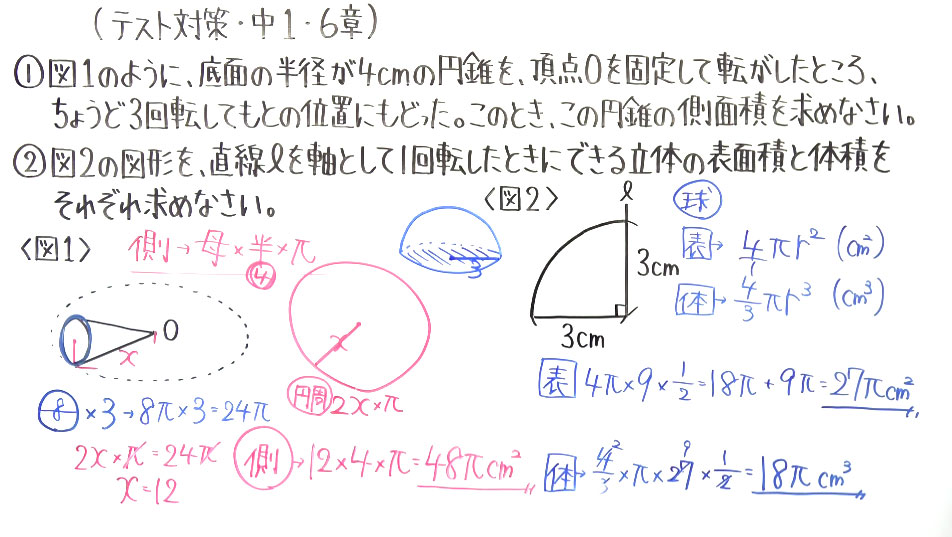 (テスト対策・中1・6章)
①図1のように、底面の半径が4cmの円錐を、頂点Oを固定して転がしたところ、
ちょうど3回転してもとの位置にもどった。このとき、この円錐の側面積を求めなさい。
②図2の図形を、直線ℓを軸として1回転したときにできる立体の表面積と体積を
それぞれ求めなさい。
〈図1〉
側→母×半×π
④
O
x
x
円周 2x×π
8×3→8π×3=24π
2x×π=24π
x=12
側→12×4×π=48πcm²
〈図2〉
ℓ
3
3cm
3cm
球
表→4πr² (cm²)
体→4/3πr³ (cm³)
表 4π×9×1/2=18π+9π=27πcm²
体→4/3×π×27×1/2=18πcm³